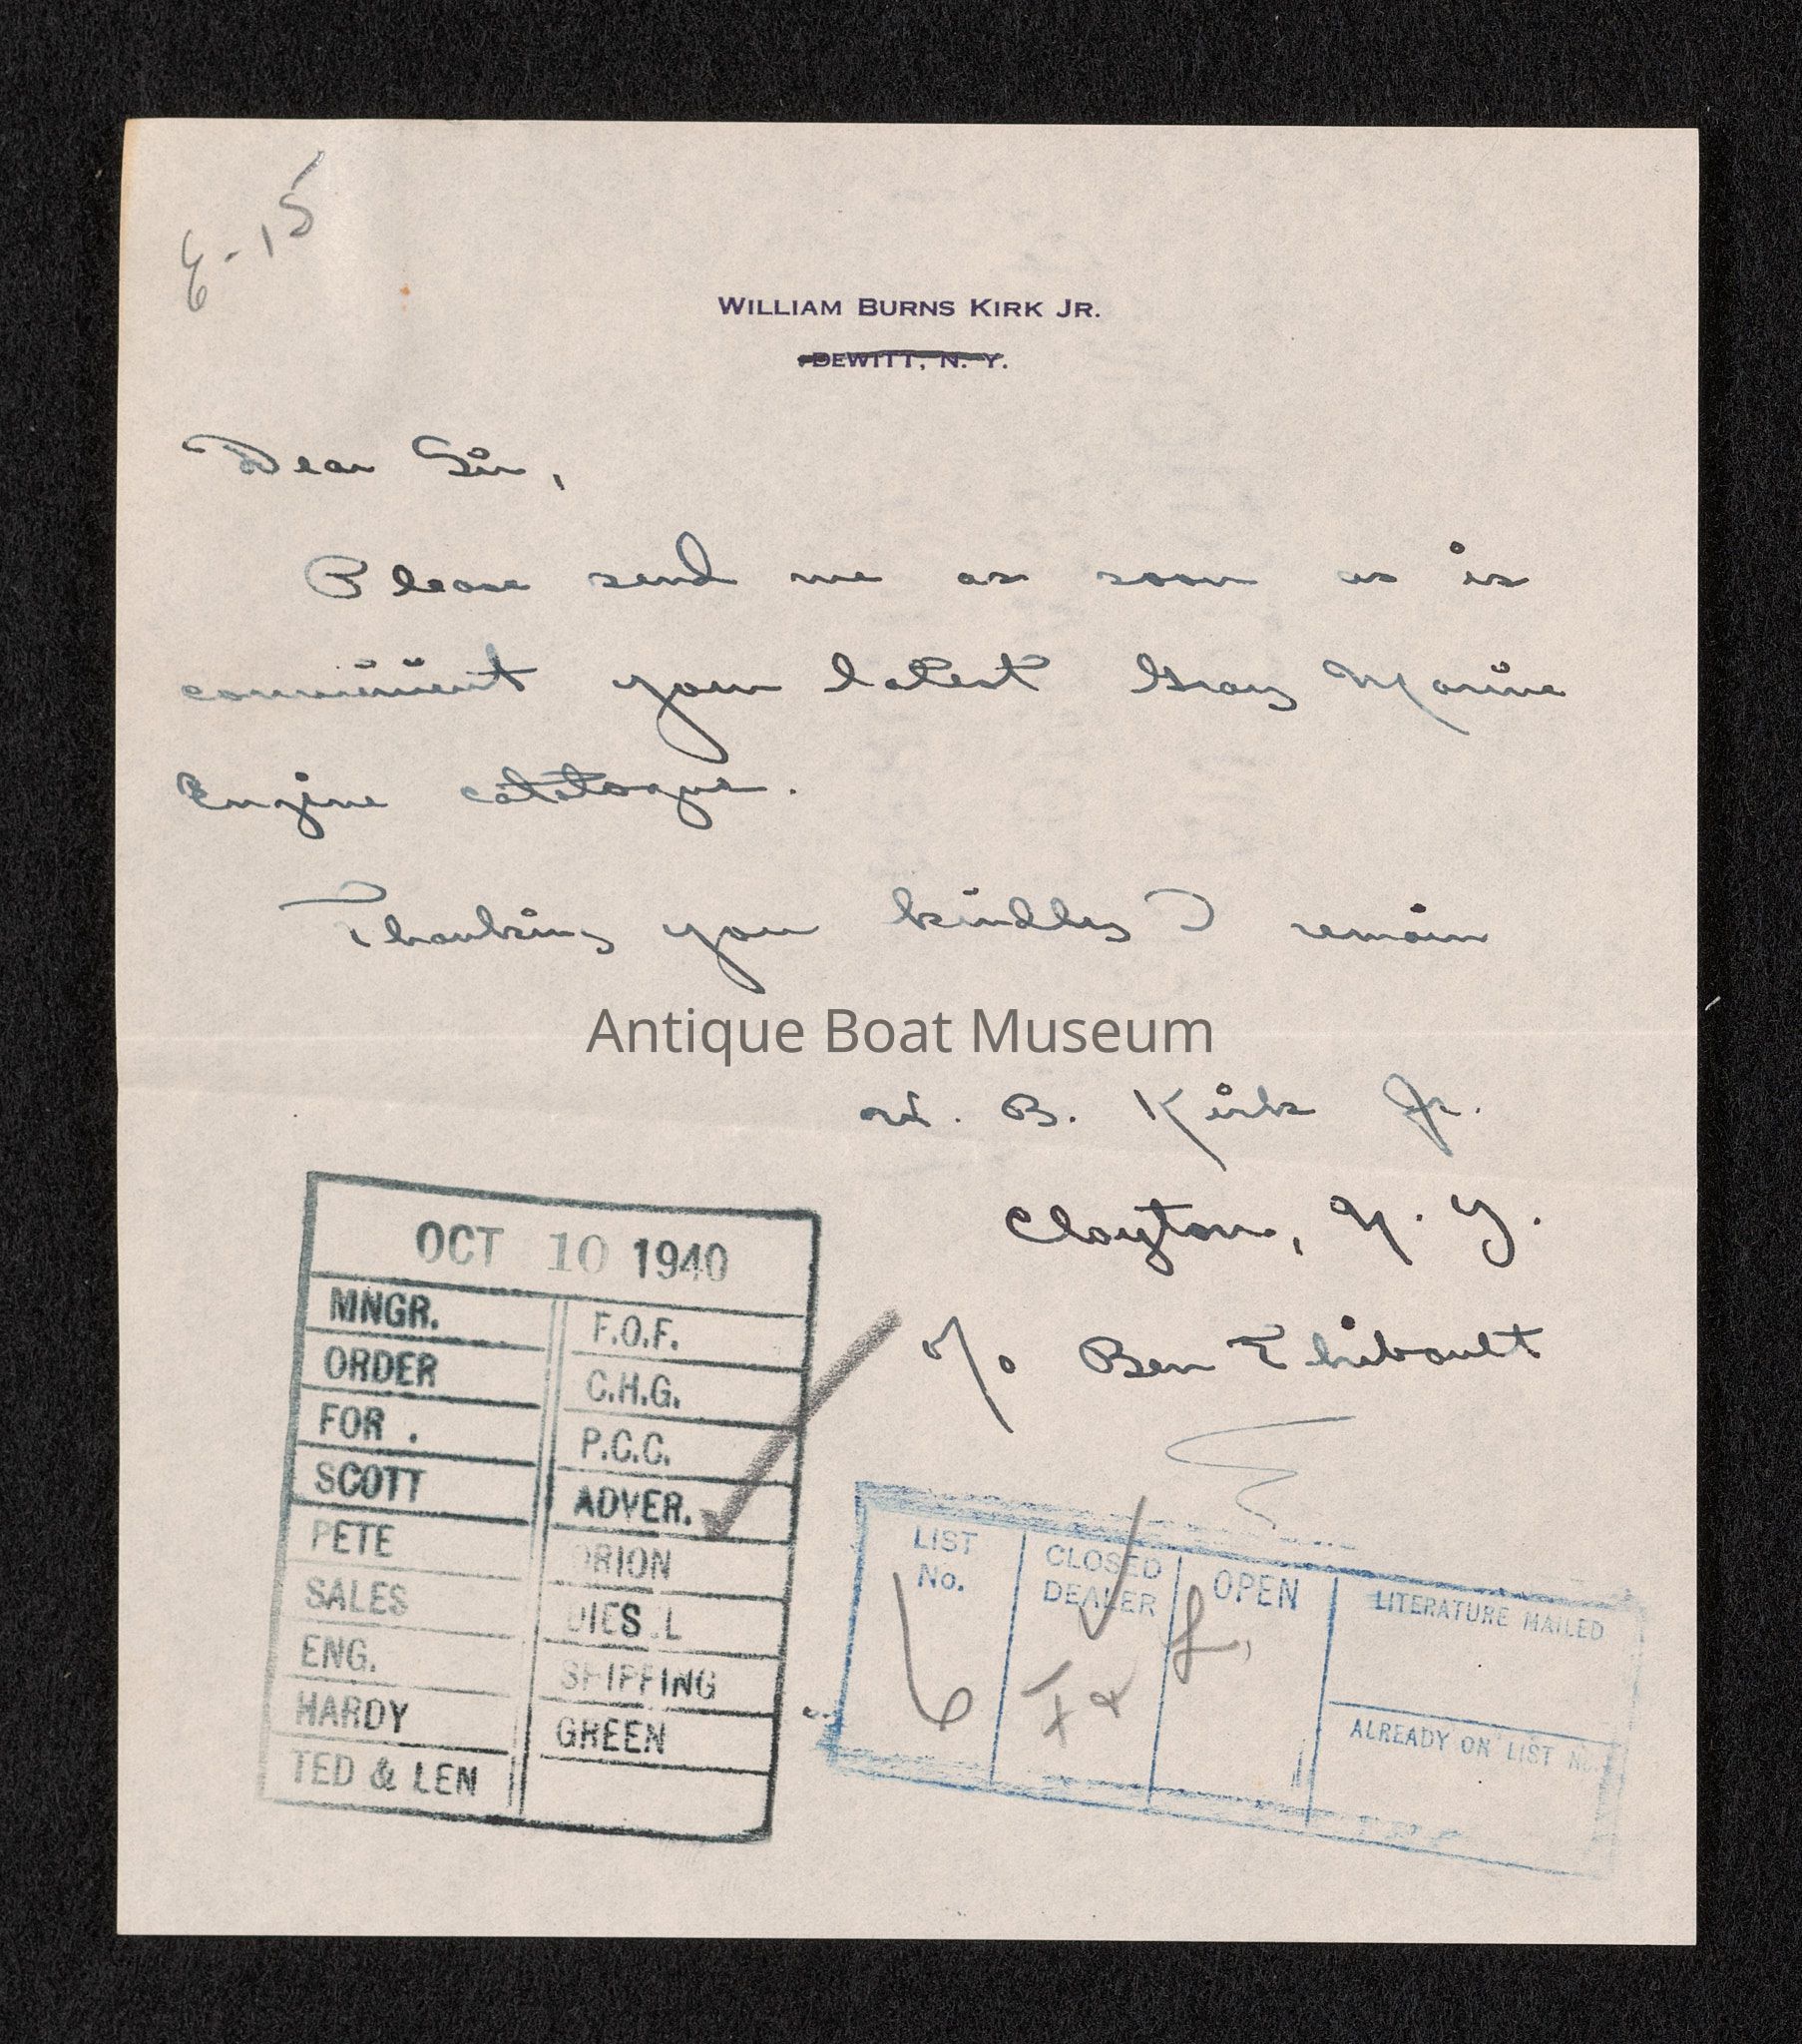 6-15
WILLIAM BURNS KIRK JR.
DEWITT, N. Y.
Dear Sir,
Please send me as soon as is
convinient your latest Gray Marine
Engine catalogue.
Thanking you kindley I remain
Antique Boat Museum
W. B. Kirk Jr.
Clayton, N. Y.
c/o Ben Thibault
OCT 10 1940
MNGR.
ORDER
FOR .
SCOTT
PETE
SALES
ENG.
HARDY
TED & LEN
F.O.F.
C.H.G.
P.C.C.
ADVER.
ORION
DIES L
SHIPPING
GREEN
LIST No.
6
CLOSED DEALER
OPEN
LITERATURE MAILED
ALREADY ON LIST NO.